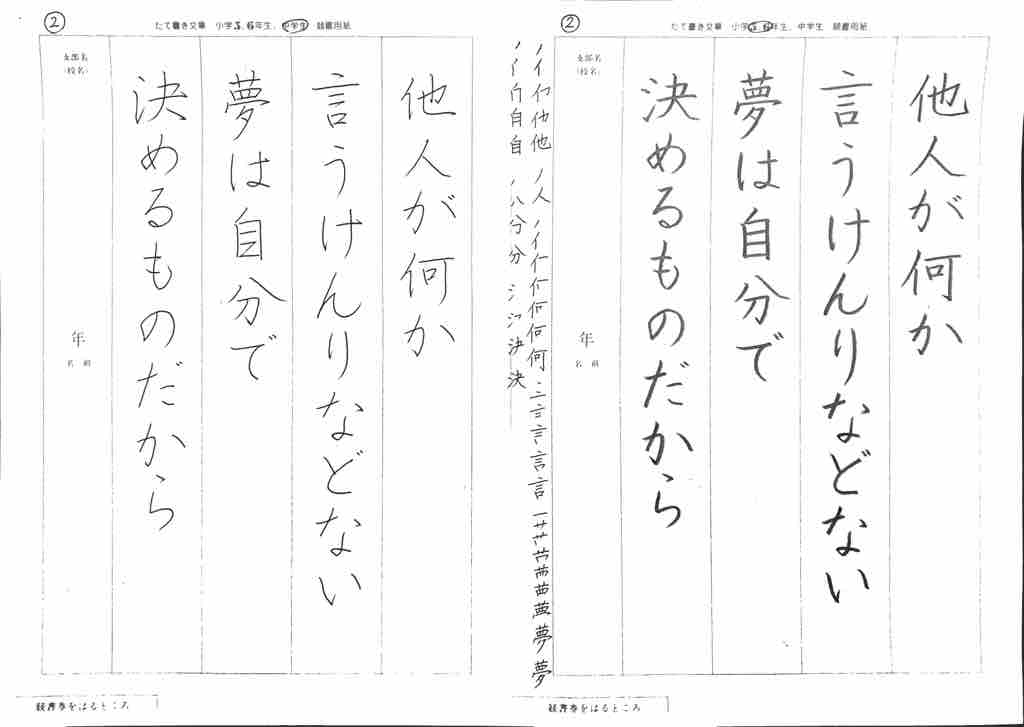 ②
たて書き文章 小学5.6年生、中学生 競書用紙
他人が何か
言うけんりなどない
夢は自分で
決めるものだから
支部名
(校名)
年
名 前
競書券をはるところ
他 人 何 言 言 夢 夢
自 自 分 分 決 決
②
たて書き文章 小学5.6年生、中学生 競書用紙
他人が何か
言うけんりなどない
夢は自分で
決めるものだから
支部名
(校名)
年
名 前
競書券をはるところ